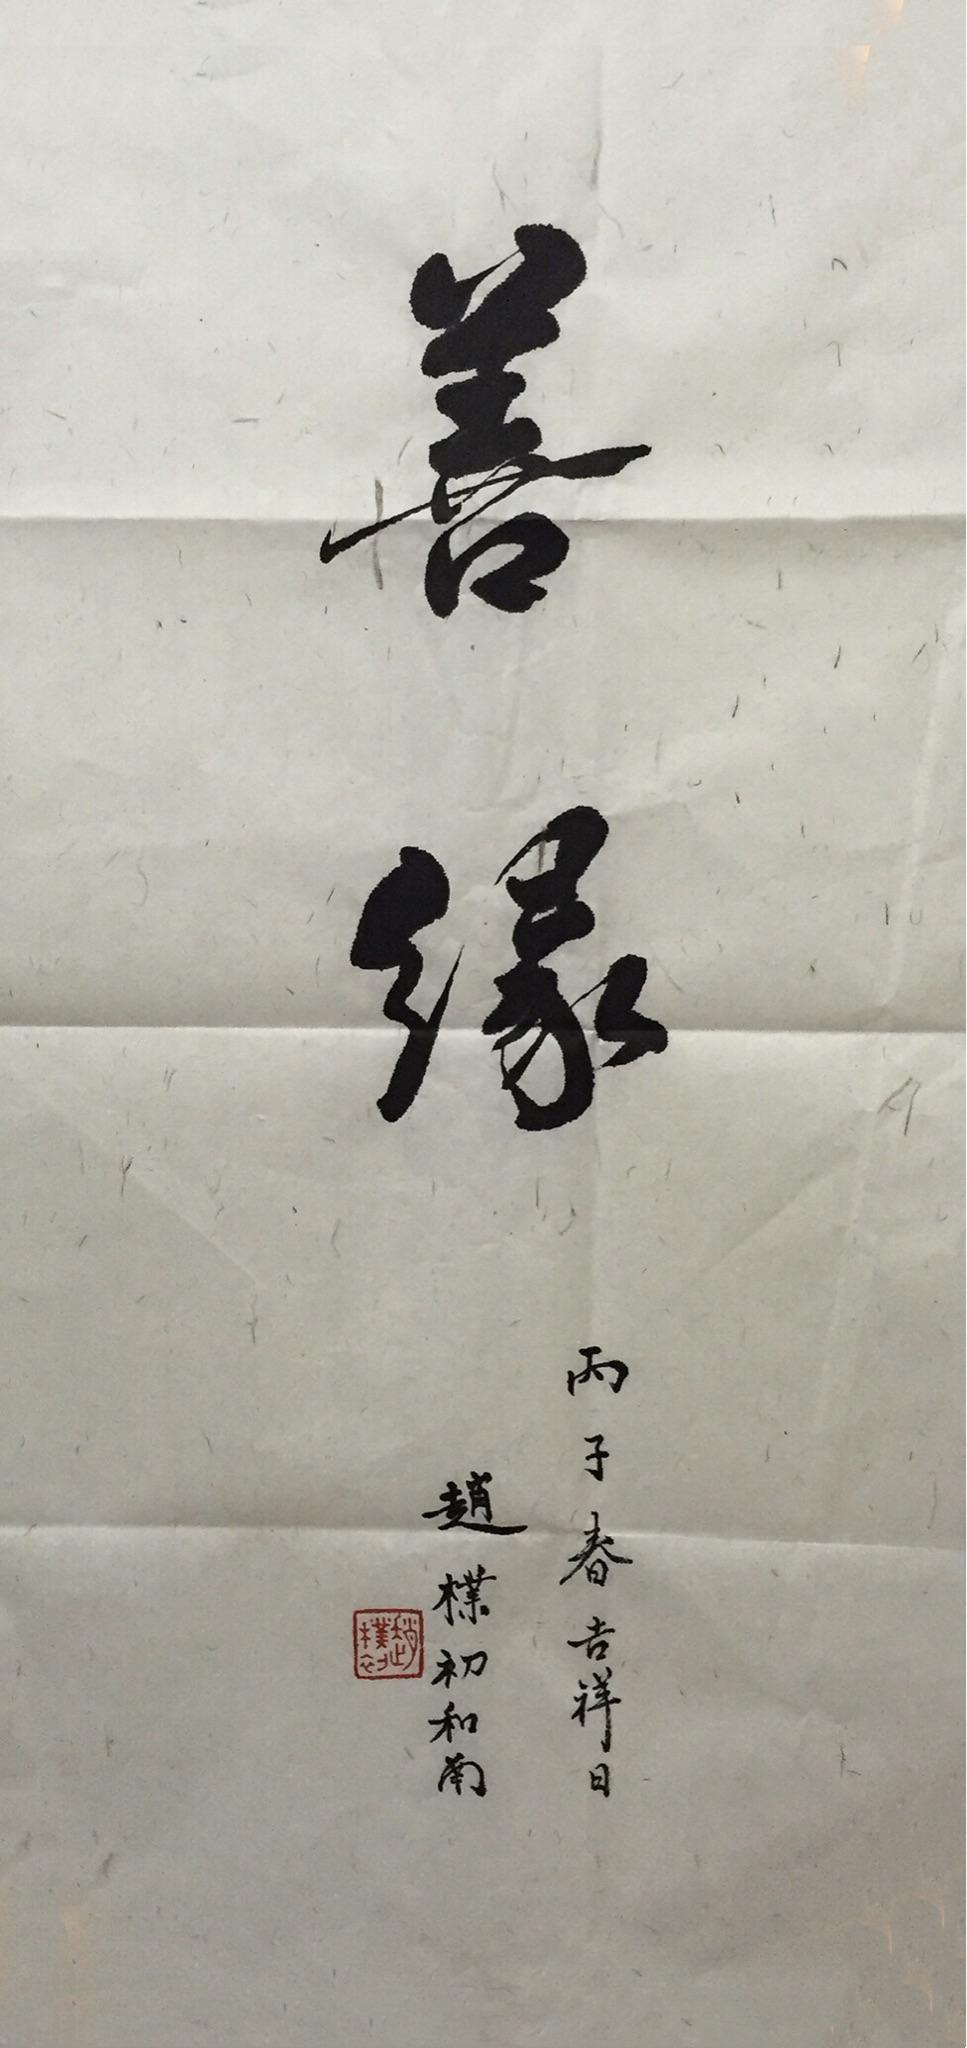 善緣
丙子春吉祥日
趙樸初和南
趙樸初